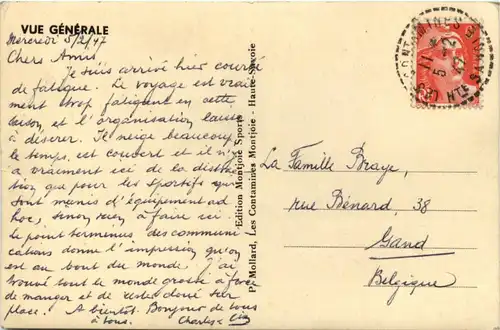 VUE GÉNÉRALE
Mercredi 5/2/47
Chers Amis
Je suis arrivé hier courbé
de fatigue. Le voyage est vrai
ment trop fatiguant en cette
saison et l'organisation laisse
à désirer. Il neige beaucoup
le temps est couvert et il n'y
a vraiment ici de la distrac
tion que pour les sportifs qui
sont munis d'équipement ad
hoc, sinon rien à faire ici.
Le point terminus des communi
cations donne l'impression qu'on
est au bout du monde. J'ai
trouvé tout le monde grosse à force
de manger et de rester
place. A bientôt. Bonjour de tous
à tous. Charles &
Edition Montjoie Sports
Pr Mollard, Les Contamines Montjoie - Haute-Savoie
La Famille Braye,
rue Bénard, 38
Gand
Belgique
LES CONTAMINES
HTE SAVOIE
11
5-2
47